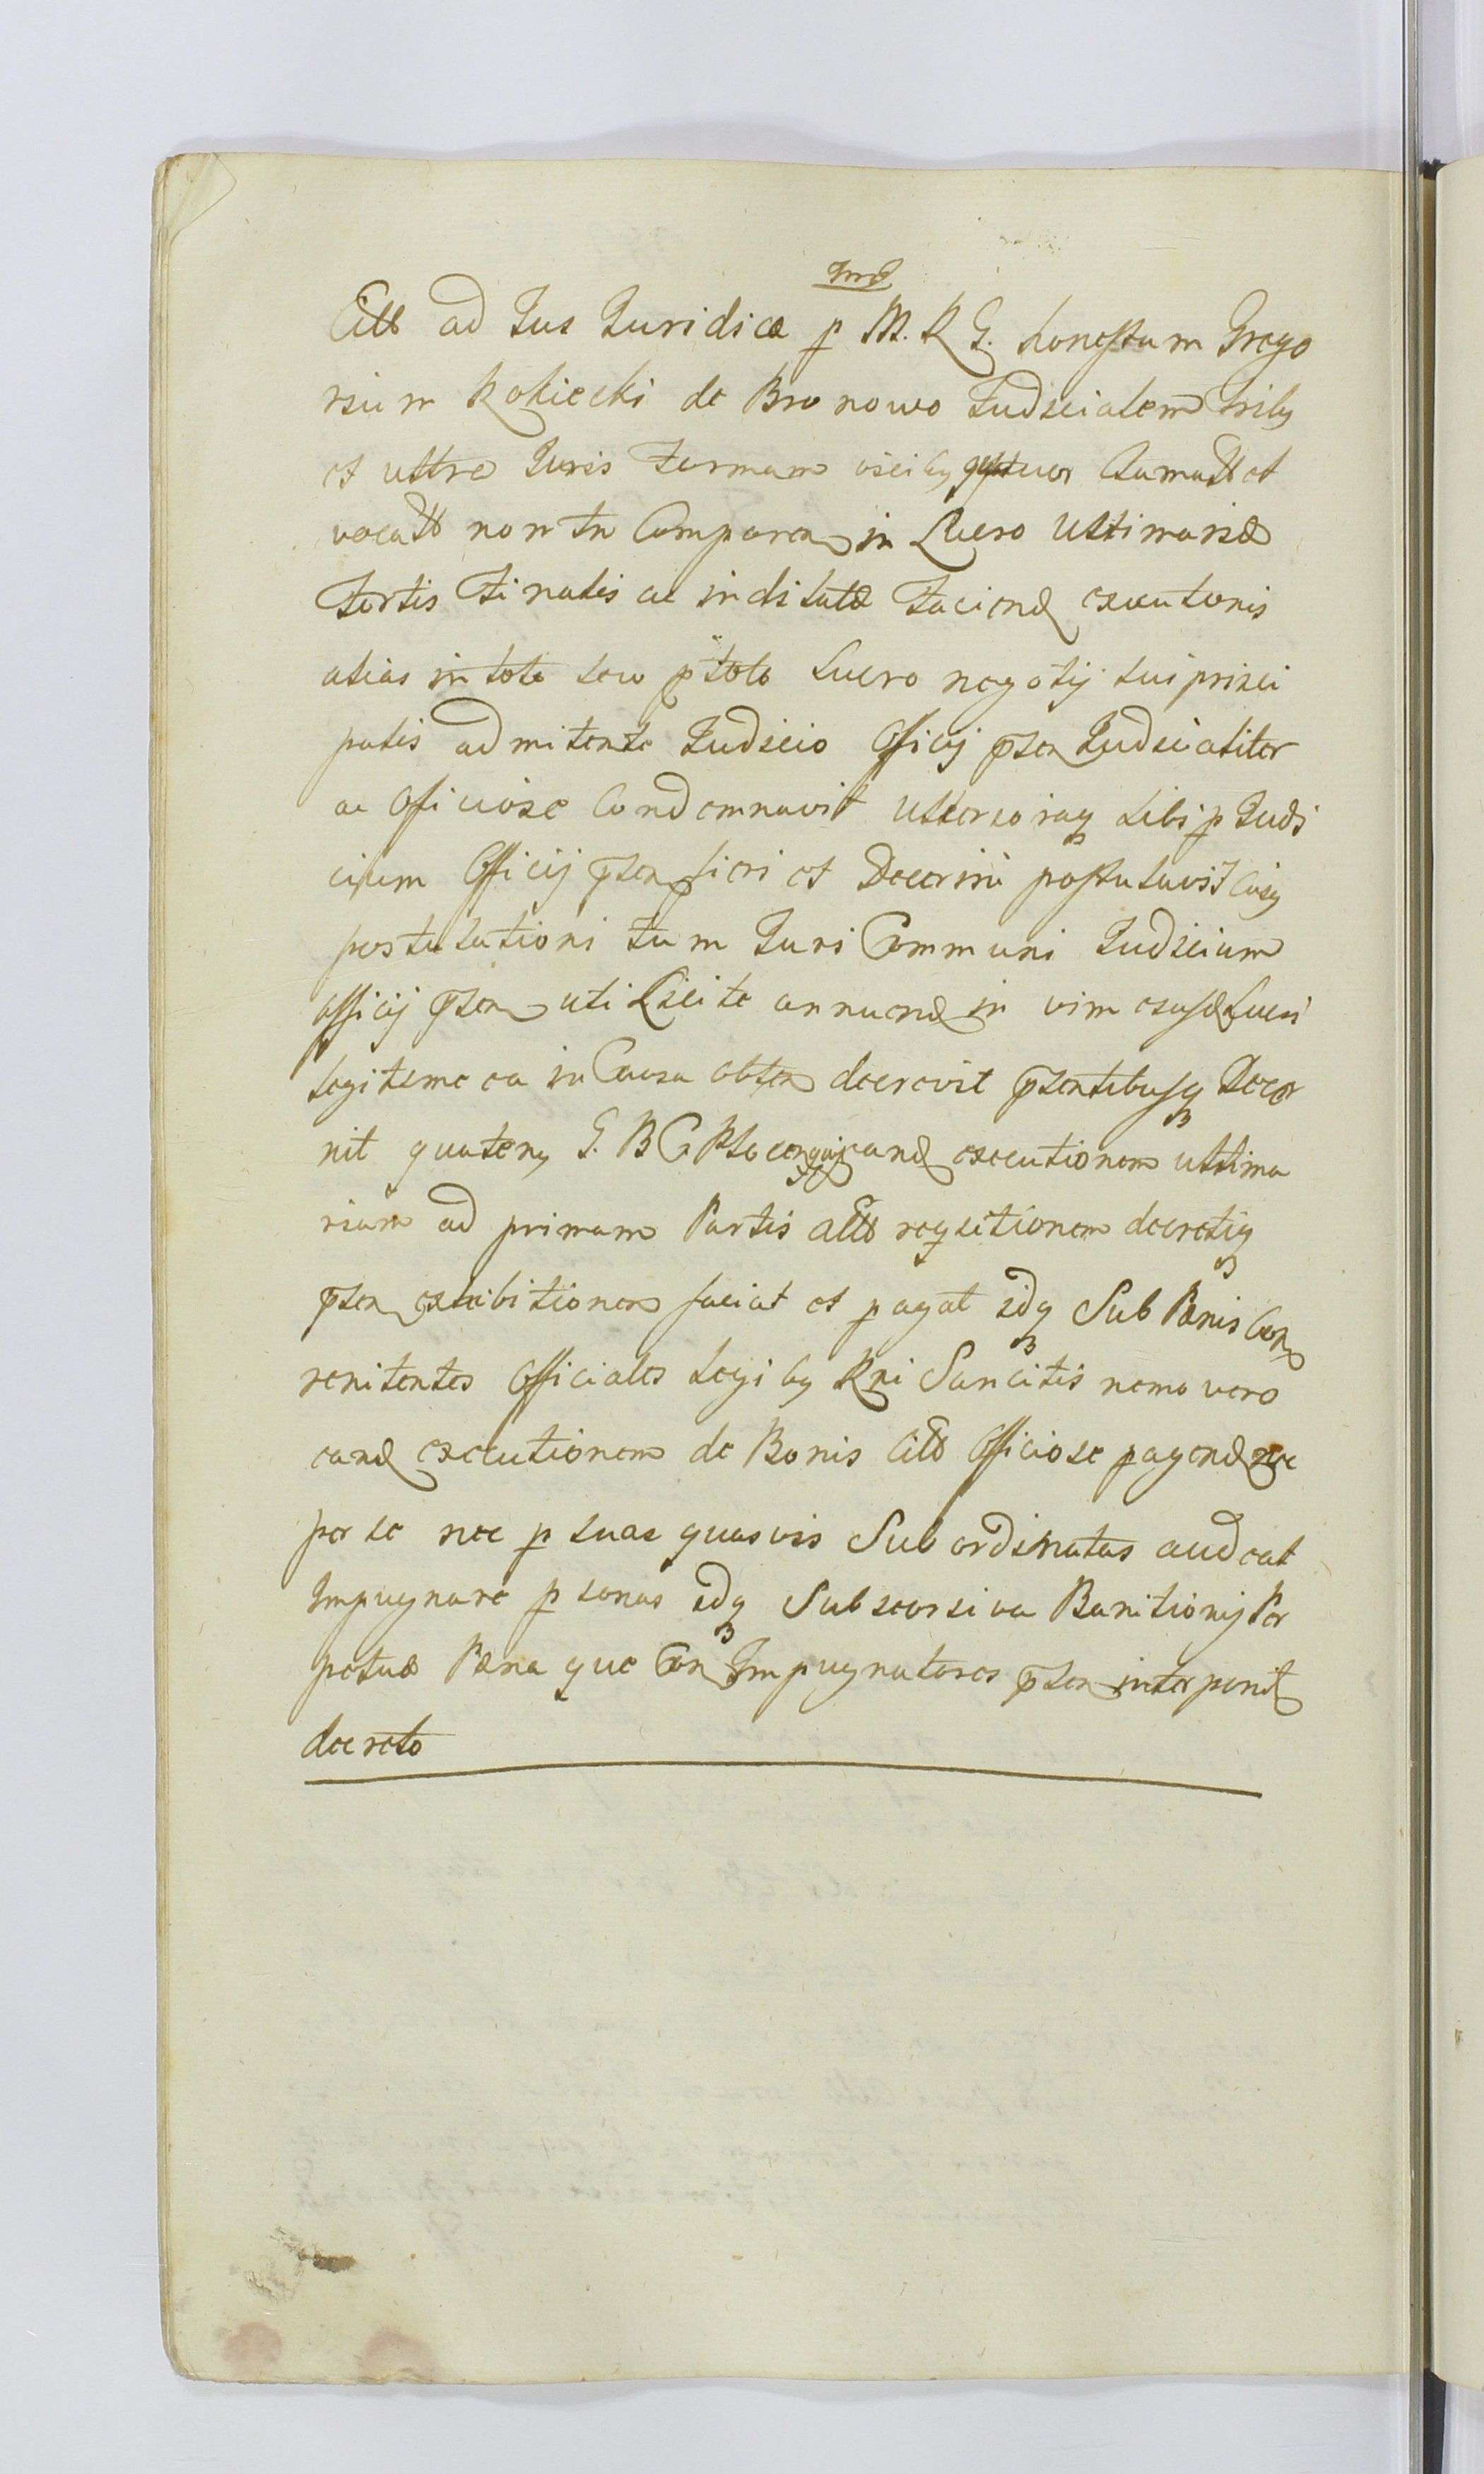 Imd
Citt ad Jus Juridice p M. R G. honestum Grego
rium Rokiecki de Bronowo Judicialem trib9
et ultra Juris formam vicib9 Clamatt et
vocatt non tn Comparen in Lucro Ultimariæ
fortis finalis ac indilatæ faciend executionis
alias in toto seu p toto Lucro negotij sui princi
palis admitente Judicio Officij pten Judicialiter
ac Oficiose Condemnavit Ulterioraq sibi p Judi
cium Officij pten fieri et Decerni postulavit Cuiq
postulationi tum Juri Communi Judicium
officij pten uti Licite annuend in vim eiusd Lucri
legitime ea in Causa obten decrevit ptentibusq Decer
nit quaten9 G. B C Ploceng eand executionem ultima
riam ad primam Partis Actt reqsitionem decretiq
pten exhibitionem faciat et pagat idq Sub Pœnis Con
renitentes Officiales Legib9 Rni Sancitis nemo vero
eand executionem de Bonis Citt Officiose pagend nec
per se nec p suas quasvis Subordinatas audeat
Impugnare psonas idq Sub scorsiva Banitionis Per
petuæ Pœna que Con Impugnatores pten interponit
decreto